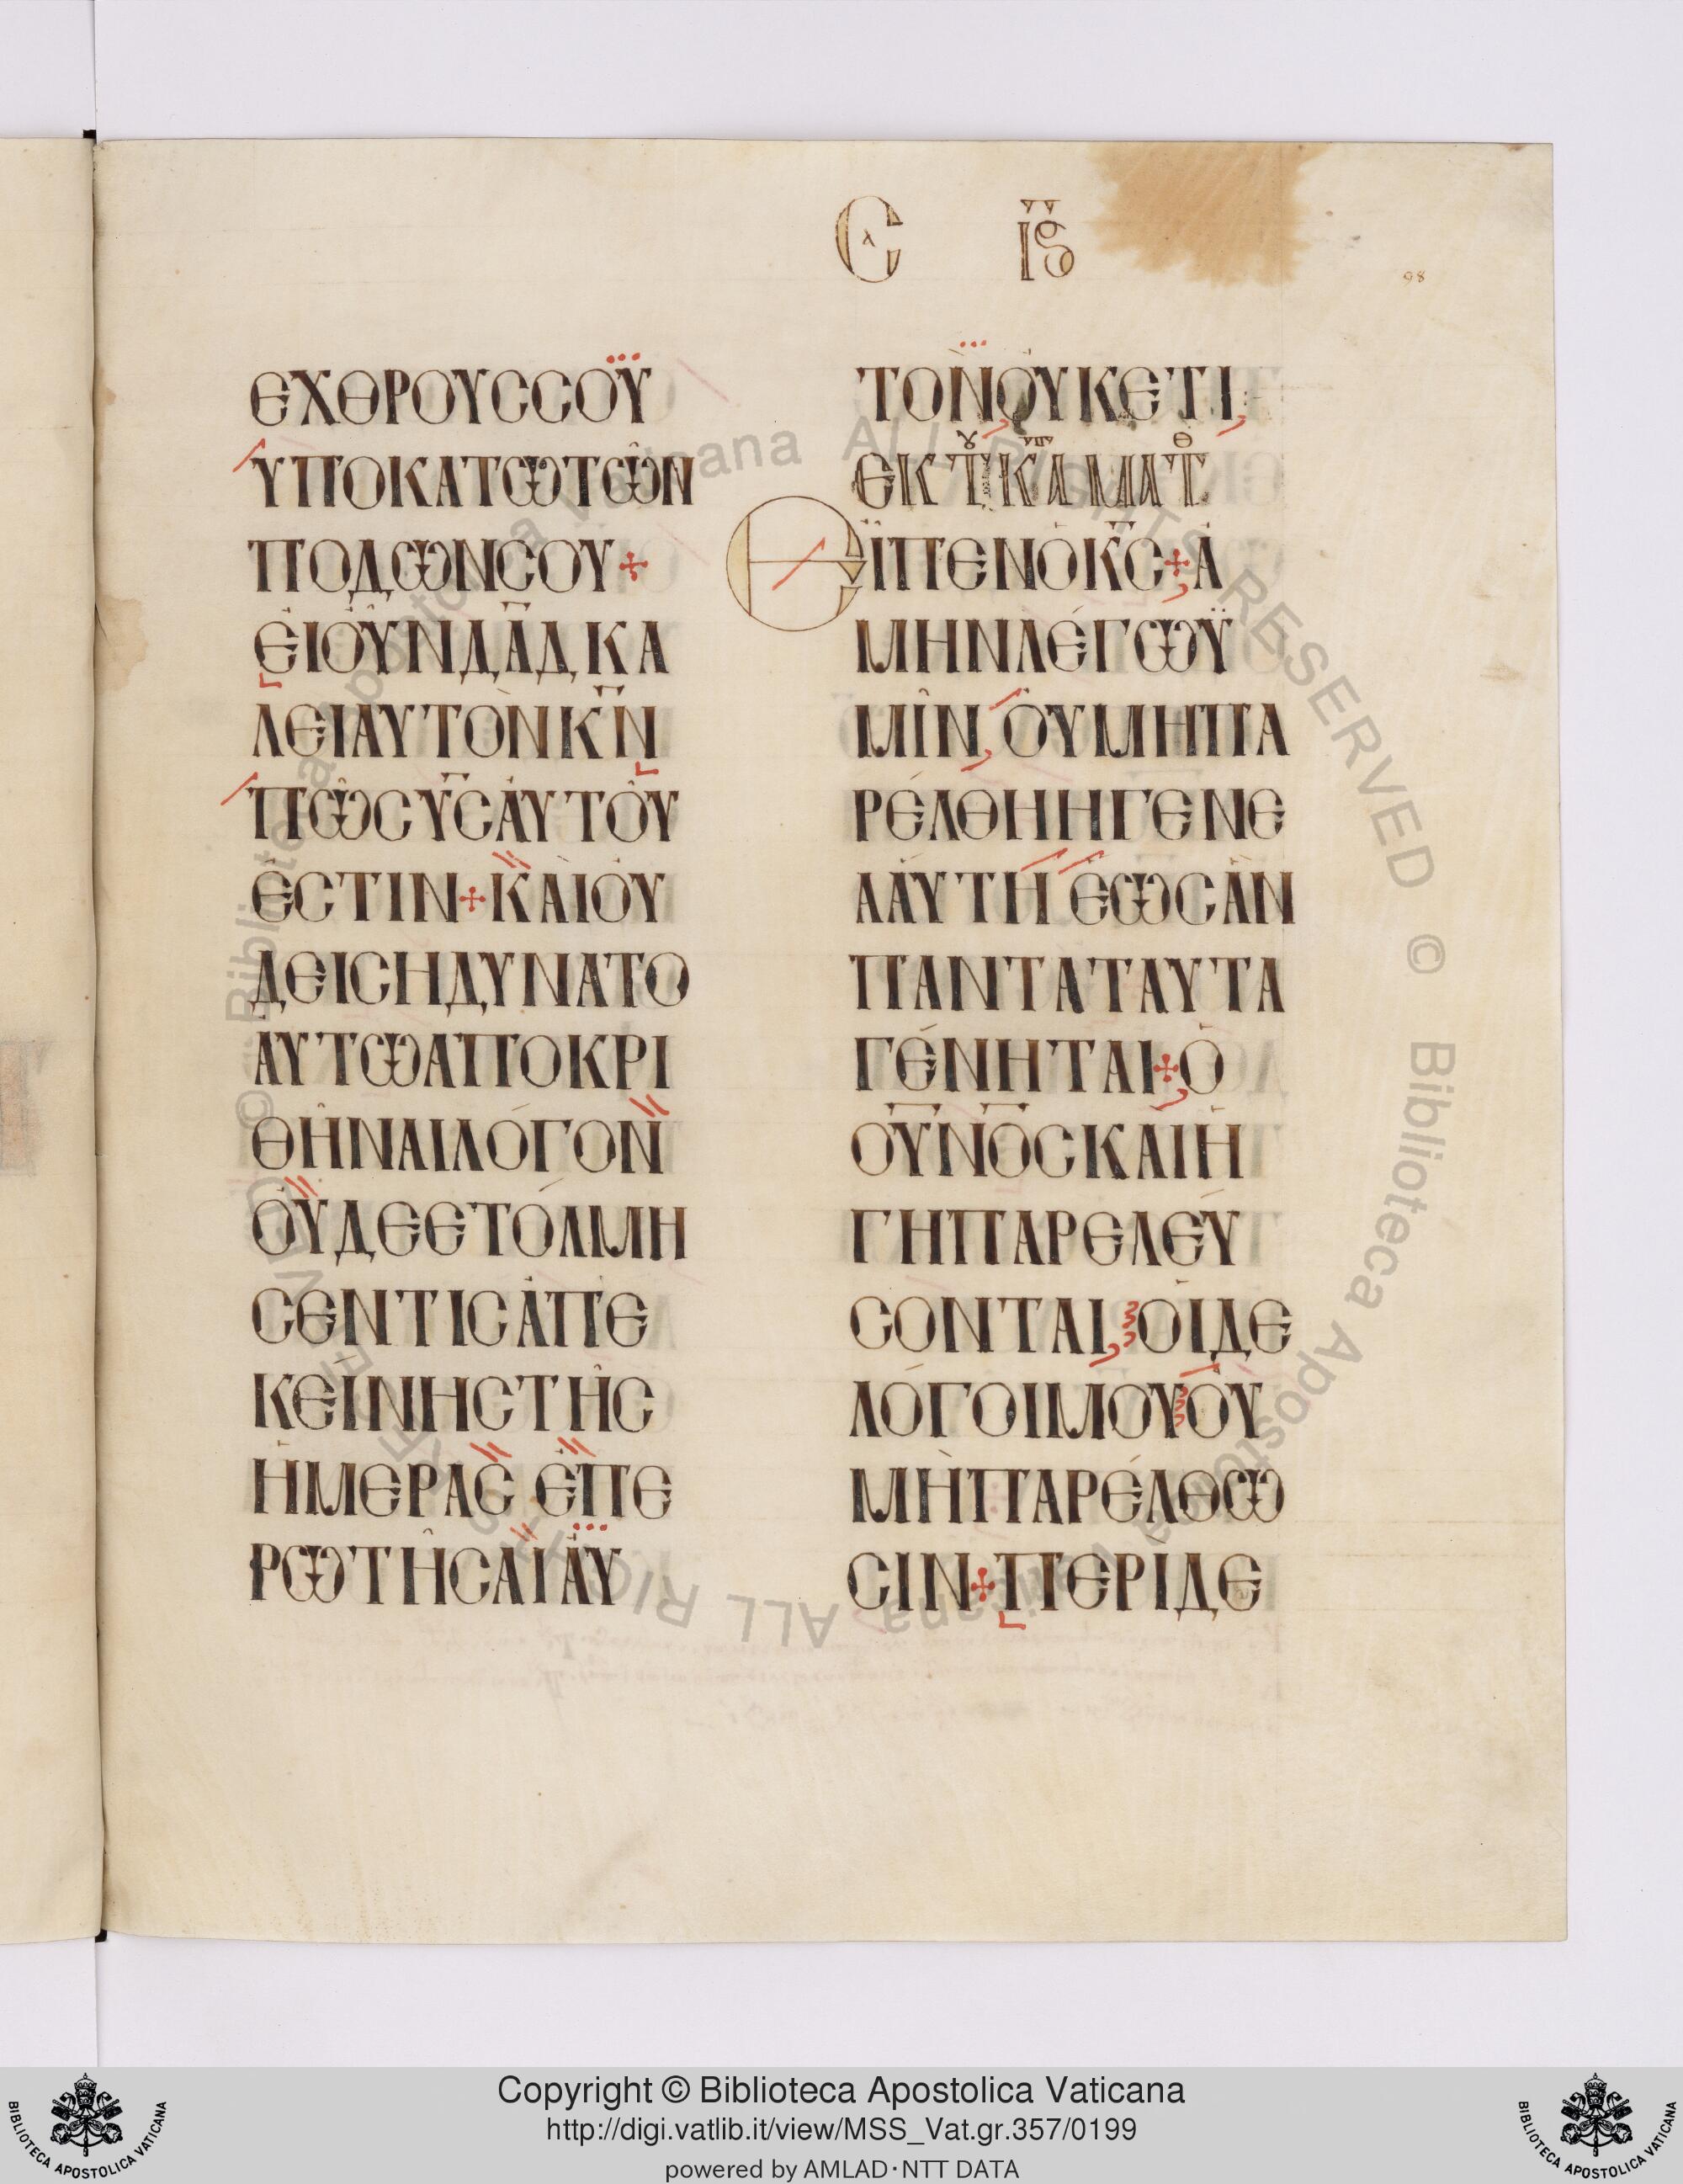 Ελ ΙϚ
98
ΕΧΘΡΟΥϹϹΟΥ
ΥΠΟΚΑΤΩΤΩΝ
ΠΟΔΩΝϹΟΥ
ΕΙΟΥΝΔΑΔΚΑ
ΛΕΙΑΥΤΟΝΚΝ
ΠΩϹΥϹΑΥΤΟΥ
ΕϹΤΙΝ ΚΑΙΟΥ
ΔΕΙϹΗΔΥΝΑΤΟ
ΑΥΤΩΑΠΟΚΡΙ
ΘΗΝΑΙΛΟΓΟΝ
ΟΥΔΕΕΤΟΛΜΗ
ϹΕΝΤΙϹΑΠΕ
ΚΕΙΝΗϹΤΗϹ
ΗΜΕΡΑϹ ΕΠΕ
ΡΩΤΗϹΑΙΑΥ
ΤΟΝΟΥΚΕΤΙ
ΕΚ ΤΟΥ ΚΑΜΑΤΘ
ΕΙΠΕΝΟΚϹ Α
ΜΗΝΛΕΓΩΫ
ΜΙΝ, ΟΥΜΗΠΑ
ΡΕΛΘΗΗΓΕΝΕ
ΑΑΥΤΗ ΕΩϹΑΝ
ΠΑΝΤΑΤΑΥΤΑ
ΓΕΝΗΤΑΙ Ο
ΟΥΝΟϹΚΑΙΗ
ΓΗΠΑΡΕΛΕΥ
ϹΟΝΤΑΙ, ΟΙΔΕ
ΛΟΓΟΙΜΟΥΟΥ
ΜΗΠΑΡΕΛΘΩ
ϹΙΝ ΠΕΡΙΔΕ
© Biblioteca Apostolica Vaticana ALL RIGHTS RESERVED © Biblioteca Apostolica Vaticana ALL RIGHTS RESERVED
Copyright © Biblioteca Apostolica Vaticana
http://digi.vatlib.it/view/MSS_Vat.gr.357/0199
powered by AMLAD·NTT DATA
BIBLIOTECA APOSTOLICA VATICANA
BIBLIOTECA APOSTOLICA VATICANA